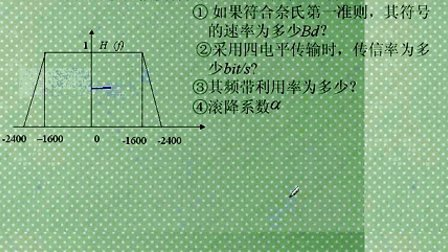 ① 如果符合奈氏第一准则，其符号
的速率为多少Bd?
②采用四电平传输时，传信率为多
少bit/s?
③其频带利用率为多少?
④滚降系数α
1 H (f)
-2400 -1600 0 -1600 -2400